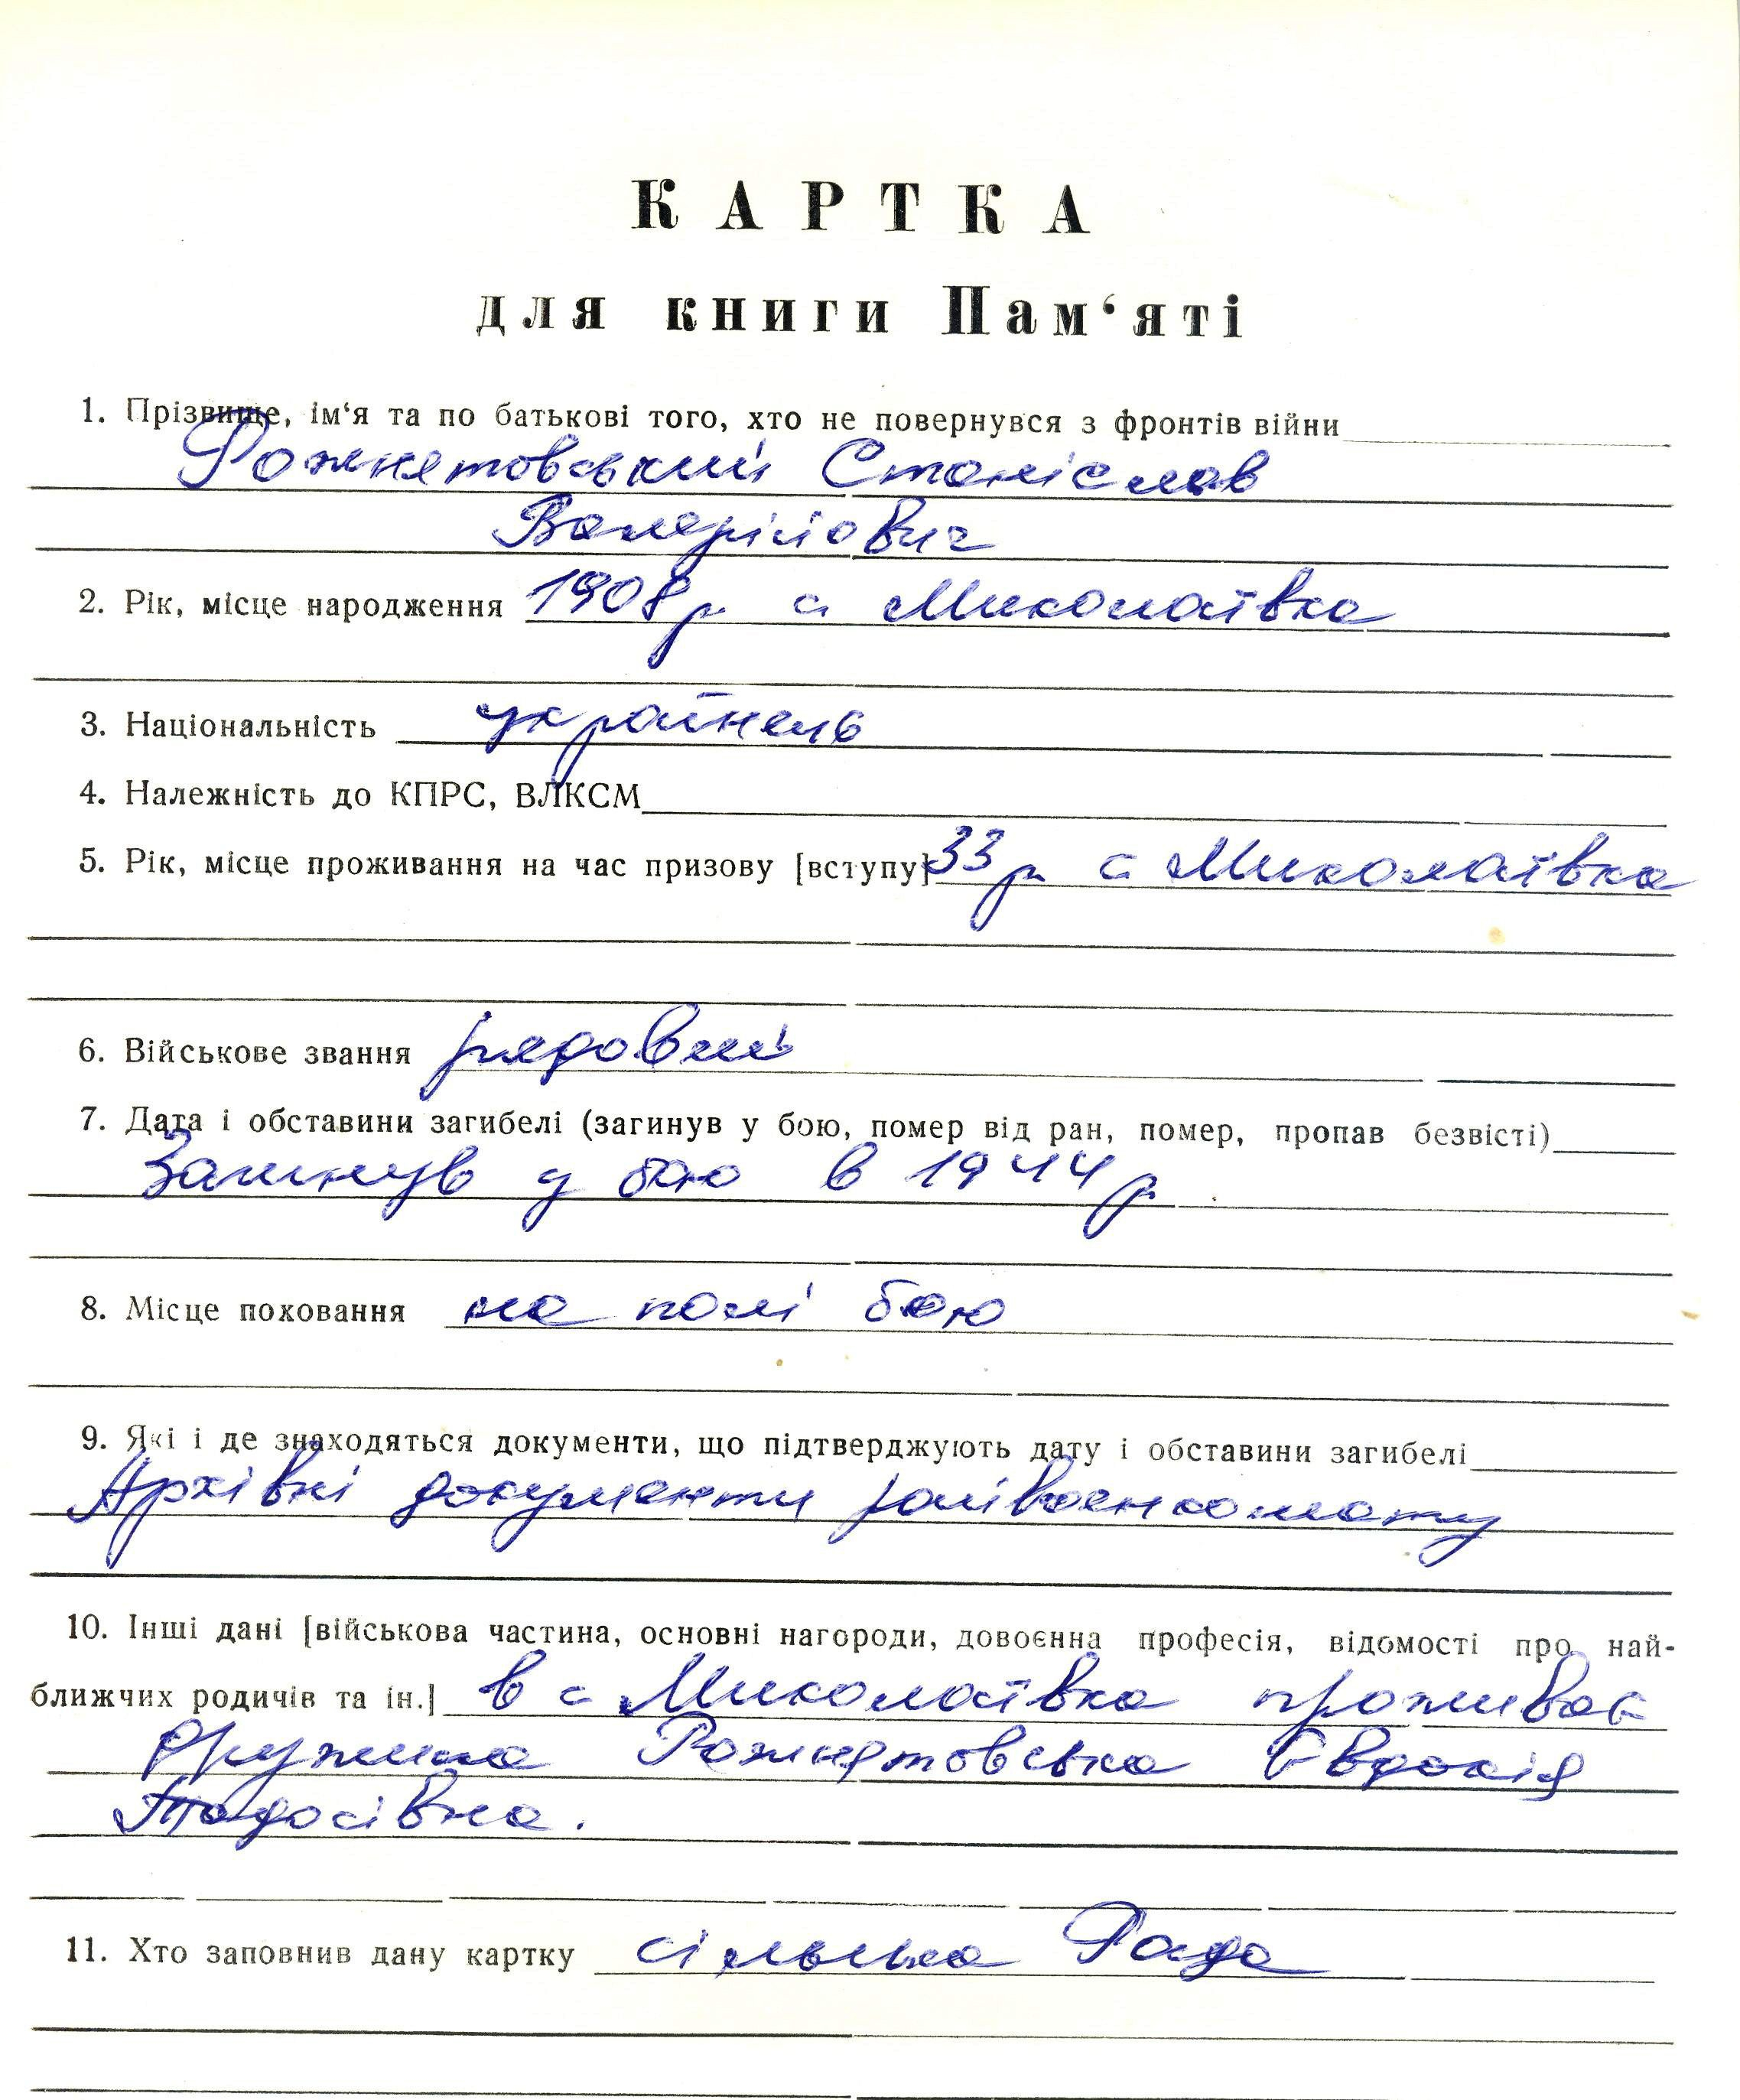 КАРТКА
для книги Пам‘яті
1. Прізвище, ім‘я та по батькові того, хто не повернувся з фронтів війни
Рожнятовський Станіслав
Валерійович
2. Рік, місце народження 1908 р. с. Миколаївка
3. Національність українець
4. Належність до КПРС, ВЛКСМ
5. Рік, місце проживання на час призову [вступу] 33 р. с. Миколаївка
6. Військове звання рядовий
7. Дата і обставини загибелі (загинув у бою, помер від ран, помер, пропав безвісті)
Загинув у бою в 1944 р.
8. Місце поховання на полі бою
9. Які і де знаходяться документи, що підтверджують дату і обставини загибелі
Архівні документи райвоєнкомату
10. Інші дані [військова частина, основні нагороди, довоєнна професія, відомості про най-
ближчих родичів та ін.] в с Миколаївка проживає
дружина Рожнятовська Євдокія
Тодосівна.
11. Хто заповнив дану картку сільська Рада